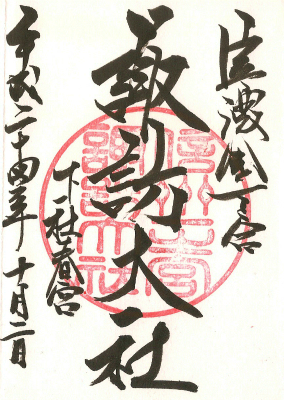 信濃國一之宮
諏訪大社
下社春宮
平成二十四年 十月二日